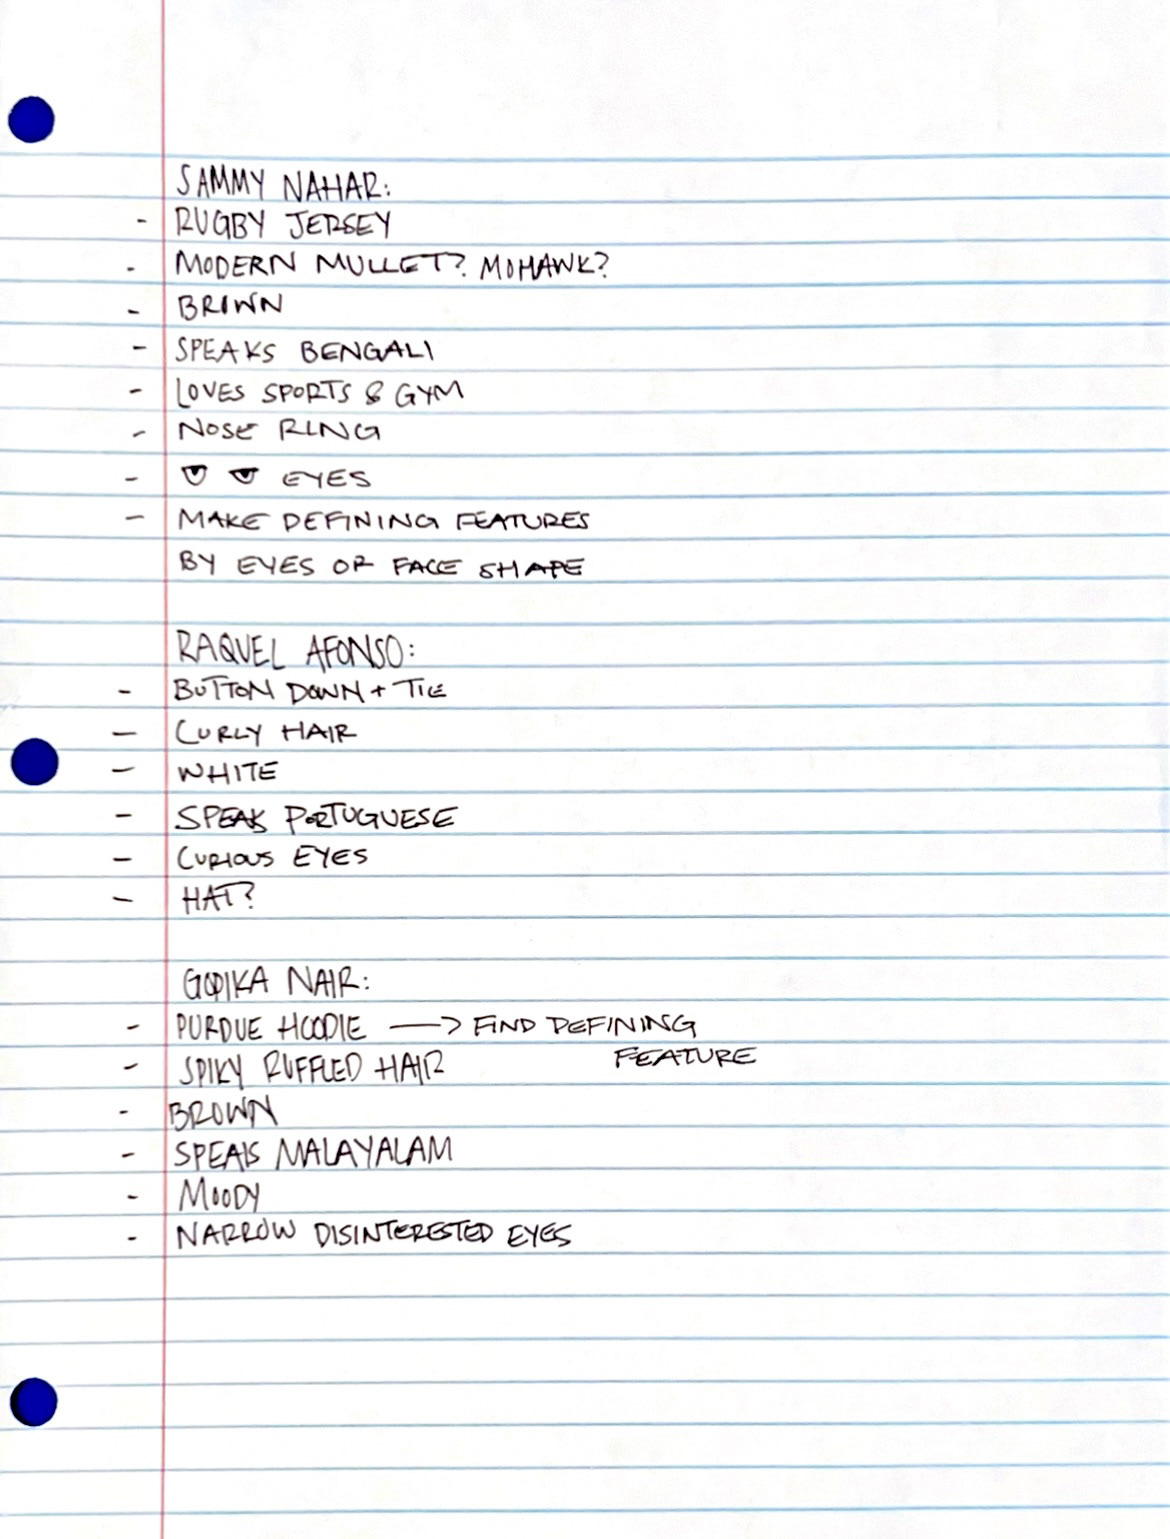 SAMMY NAHAR:
- RUGBY JERSEY
- MODERN MULLET? MOHAWK?
- BROWN
- SPEAKS BENGALI
- LOVES SPORTS & GYM
- NOSE RING
- EYES
- MAKE DEFINING FEATURES
BY EYES OR FACE SHAPE
RAQUEL AFONSO:
- BUTTON DOWN + TIE
- CURLY HAIR
- WHITE
- SPEAKS PORTUGUESE
- CURIOUS EYES
- HAT?
GOPIKA NAIR:
- PURDUE HOODIE → FIND DEFINING
FEATURE
- SPIKY RUFFLED HAIR
- BROWN
- SPEAKS MALAYALAM
- MOODY
- NARROW DISINTERESTED EYES